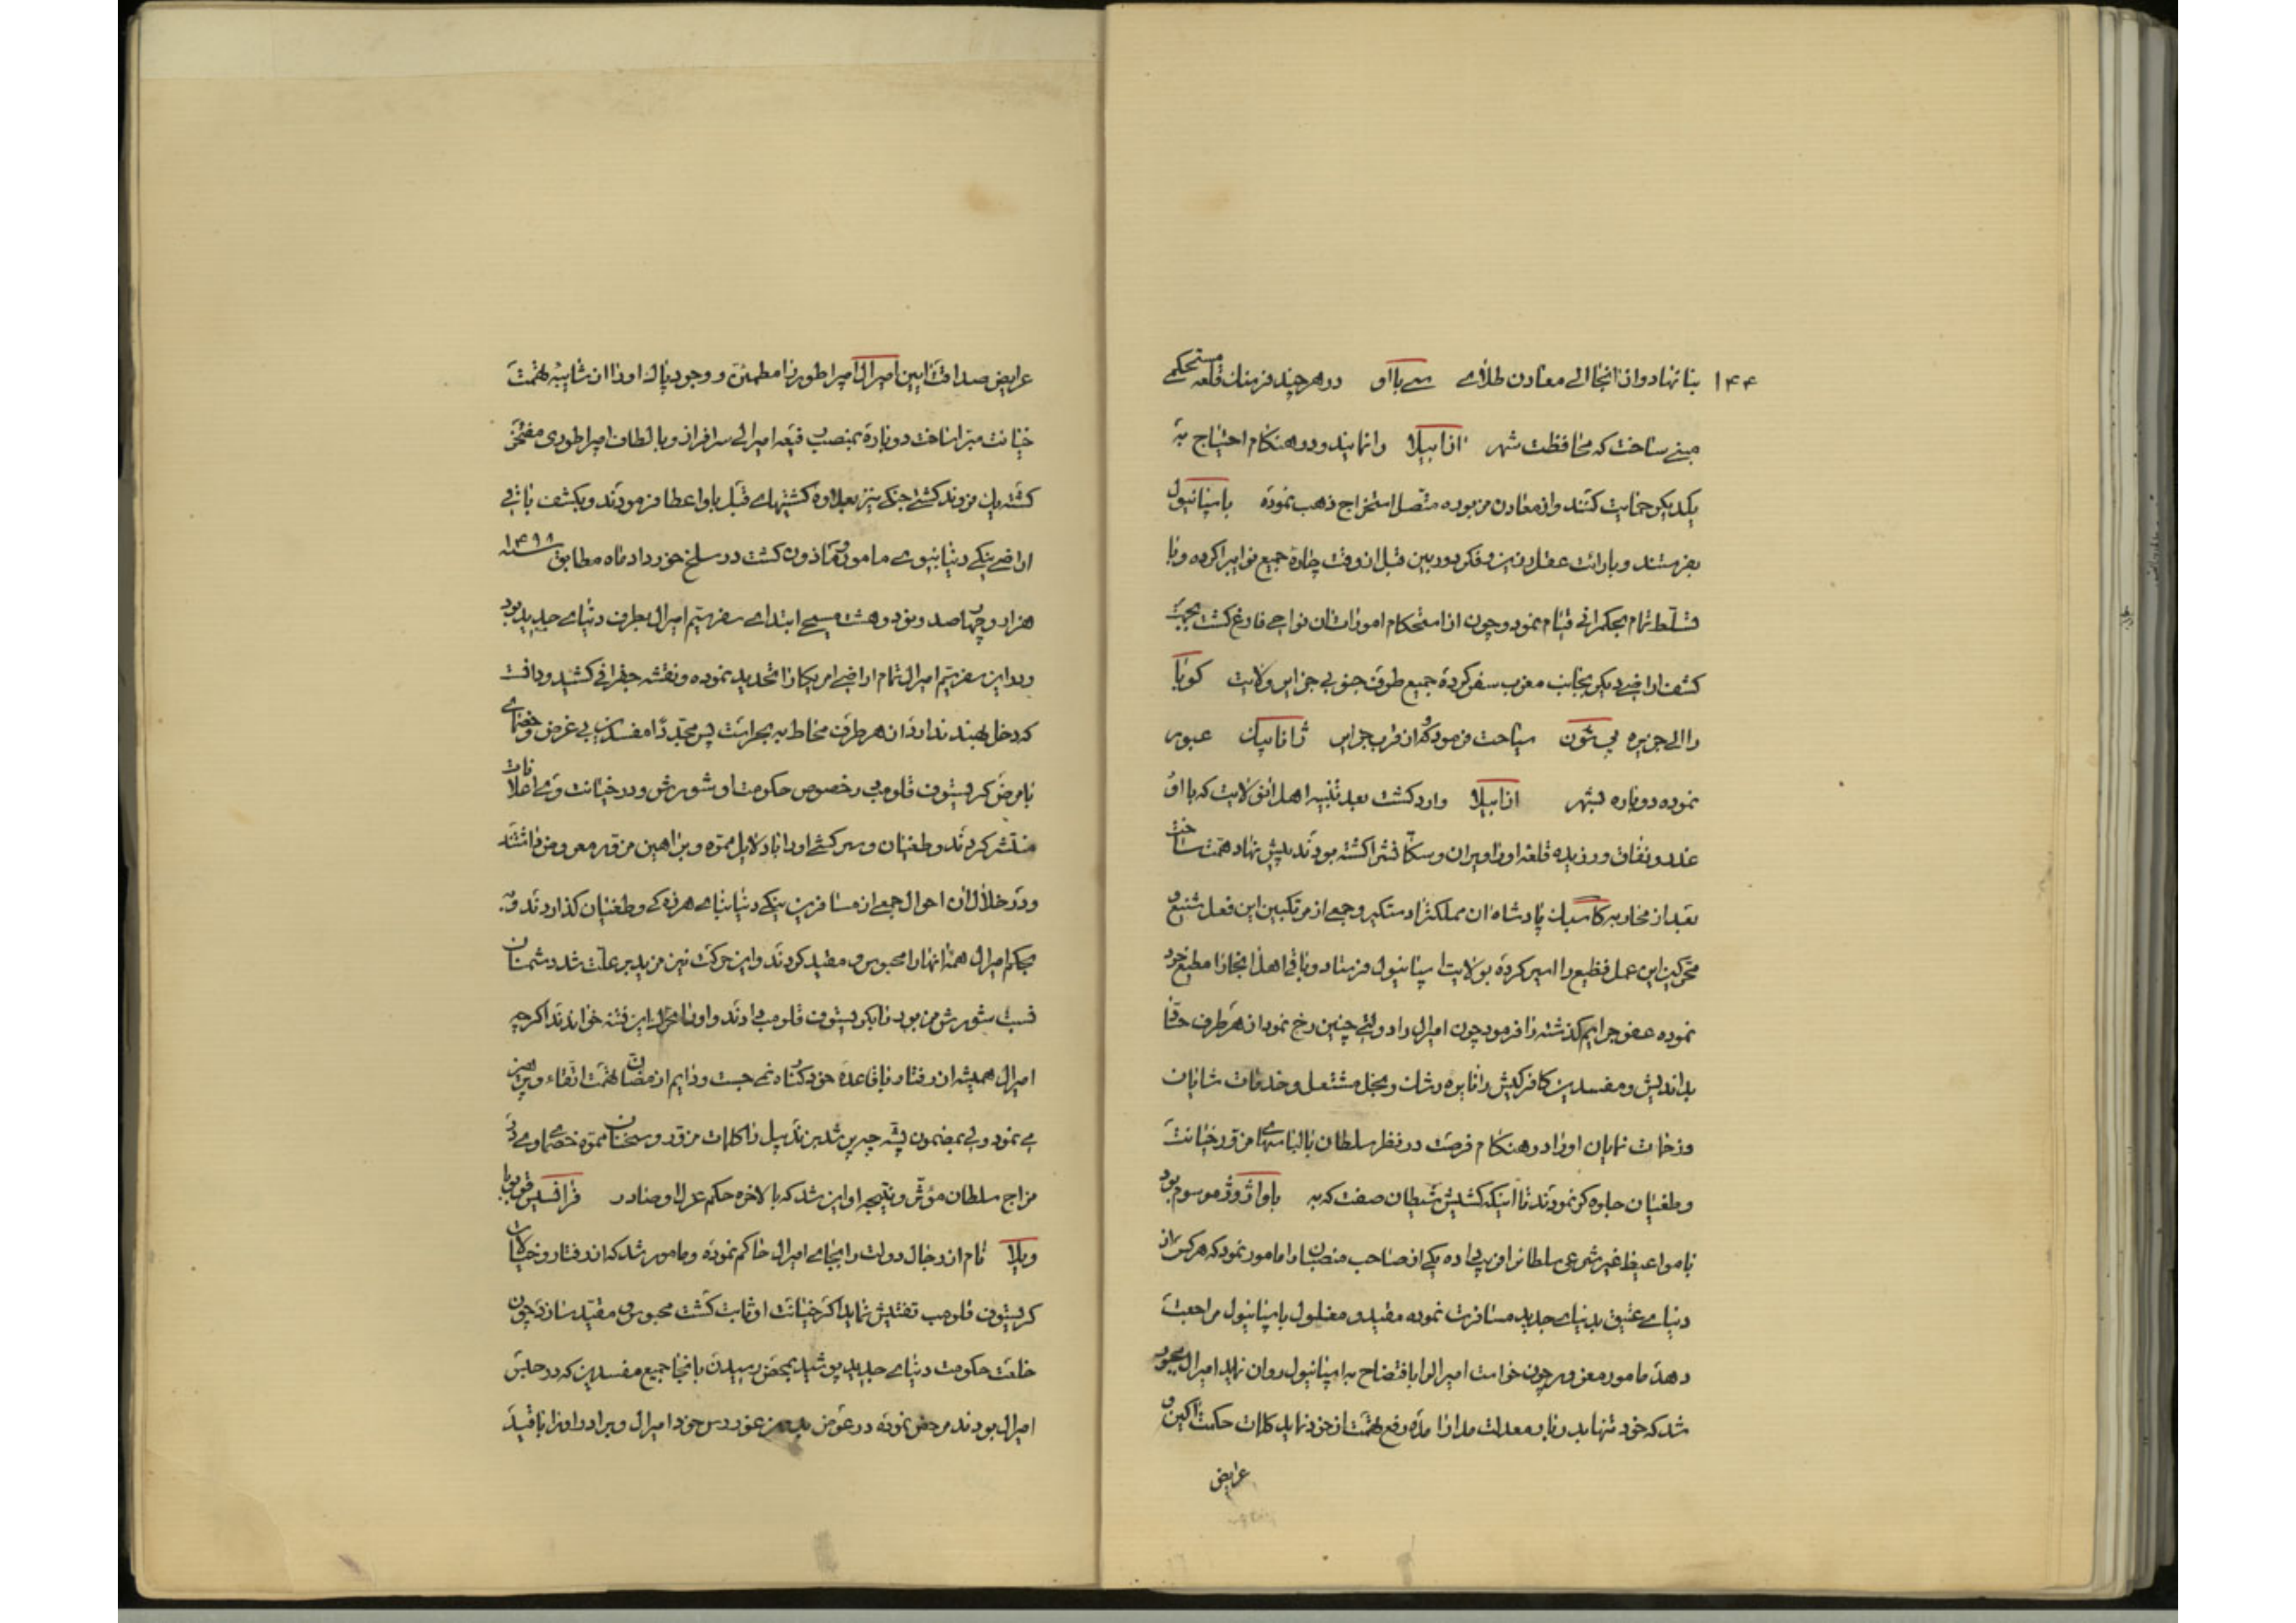 ۱۴۴ بنا نهاد و از انجا الی معادن طلای سی باو در هر چند فرسنك قلعه مستحکمی
مبنی ساخت که محافظت شهر ازابیلا را نمایند و در هنکام احتیاج به
یکدیکر حمایت کنند و از معادن مزبوره متصل استخراج ذهب نموده باسپانیول
بفرستند و بارائت عقل رزین و فکر دوربین قبل از وقت چاره جمیع نوایبرا کرده و با
تسلط تمام بحکمرانی قیام نمود و چون از استحکام امورات ان نواحی فارغ کشت بجهة
کشف اراضی دیکر بجانب مغرب سفر کرده جمیع طرف جنوبی جزایر ولایت کوبا
را الی جزیره سیاحت فرمود و از قرب جزایر ژاماییك عبور
نموده دوباره بشهر ازابیلا وارد کشت بعد تنبیه اهل انولایت که با او
غدر و نفاق ورزیده قلعه اورا ویران و سکانشرا کشته بودند پیش نهاد همت ساخت
بعد از محاربه پادشاه ان مملکترا دستکیر و جمعی از مرتکبین این فعل شنیع و
محرکین این عمل فظیع را اسیر کرده بولایت اسپانیول فرستاد و باقی اهل انجا را مطیع خود
نموده عفو جرایم کذشته را فرمود چون امیرال را دولتی چنین رخ نمود از هر طرف
بداندیش و مفسدین کافرکیش را نایره رشك و بخل مشتعل و خدمات شایان
و زحمات نمایان اورا در هنکام فرصت در نظر سلطان بالباسهای مزور خیانت
و طغیان جلوه کر نمودند تا اینکه کشیش شیطان صفت که به موسوم بود
با مواعیظ غیر شرعی سلطانرا فریب داده یکی از صاحب منصبان را مامور نمود که هر کس از
دنیای عتیق بدنیای جدید مسافرت نموده مقید و مغلول باسپانیول مراجعت
دهد مامور مغرور چون خواست امیرالرا بافتضاح به اسپانیول روان نماید امیرال مجبور
شد که خود تنها بدربار معدلت مدار امده رفع تهمت از خود نماید کلمات حکمت اکین و
عرایض
عرایض صداقت ایین امیرال امپراطور را مطمئن و وجود پاك اورا از شایبه تهمت
خیانت مبرا ساخت دوباره بمنصب رفیعه امیرالی سرافراز و بالطاف امپراطوری مفتخر
کشته یك فروند کشتی جنکی نیز بعلاوه کشتیهای قبل باو اعطا فرمودند و بکشف باقی
اراضی ینکی دنیا بنوی مامور و ماذون کشت در سلخ خورداد ماه مطابق سنه ۱۴۹۸
هزار و چهار صد و نود و هشت مسیحی ابتدای سفر سیم امیرال بطرف دنیای جدید بود
در این سفر سیم امیرال تمام اراضی امریکا را تحدید نموده و نقشه جغرافی کشید و دانست
که دخل بهند ندارد از هر طرف محاط به بحر است پس مجددا مفسدین بی غرض و خصمای
با مرض کریستوف قلومب در خصوص حکومت او شورش و در خیانت وی
منتشر کردند و طغیان و سرکشی اورا با دلایل مموه و براهین مزور معروض داشتند
و در خلال ان احوال جمعی از مسافرین ینکی دنیا بنای هرزه کی و طغیان کذاردند و به
حکم امیرال همه انها را محبوس و مقید کردند و این حرکت نیز مزید بر علت شد دشمنان
نسبت شورش مزبور را بکریستوف قلومب دادند و اورا محرك این فتنه خواندند اکرچه
امیرال همیشه از رفتار بیقاعده خود کناره می جست و دایم از مضان تهمت اتقاء و پرهیز
می نمود ولی بمضمون پشه چو پر شد بزند پیل را کلمات مزور و سخنان مموه خصمای وی در
مزاج سلطان مؤثر و نتیجه او این شد که بالاخره حکم عزل او صادر
نام از رجال دولت را بجای امیرال حاکم نموده و مامور شد که از رفتار و خیالات
کریستوف قلومب تفتیش نماید اکر خیانت او ثابت کشت محبوس و مقید سازد چون
خلعت حکومت دنیای جدید پوشید بمحض رسیدن بانجا جمیع مفسدین که در حبس
امیرال بودند مرخص نموده در عوض خود امیرال و برادر اورا با قید